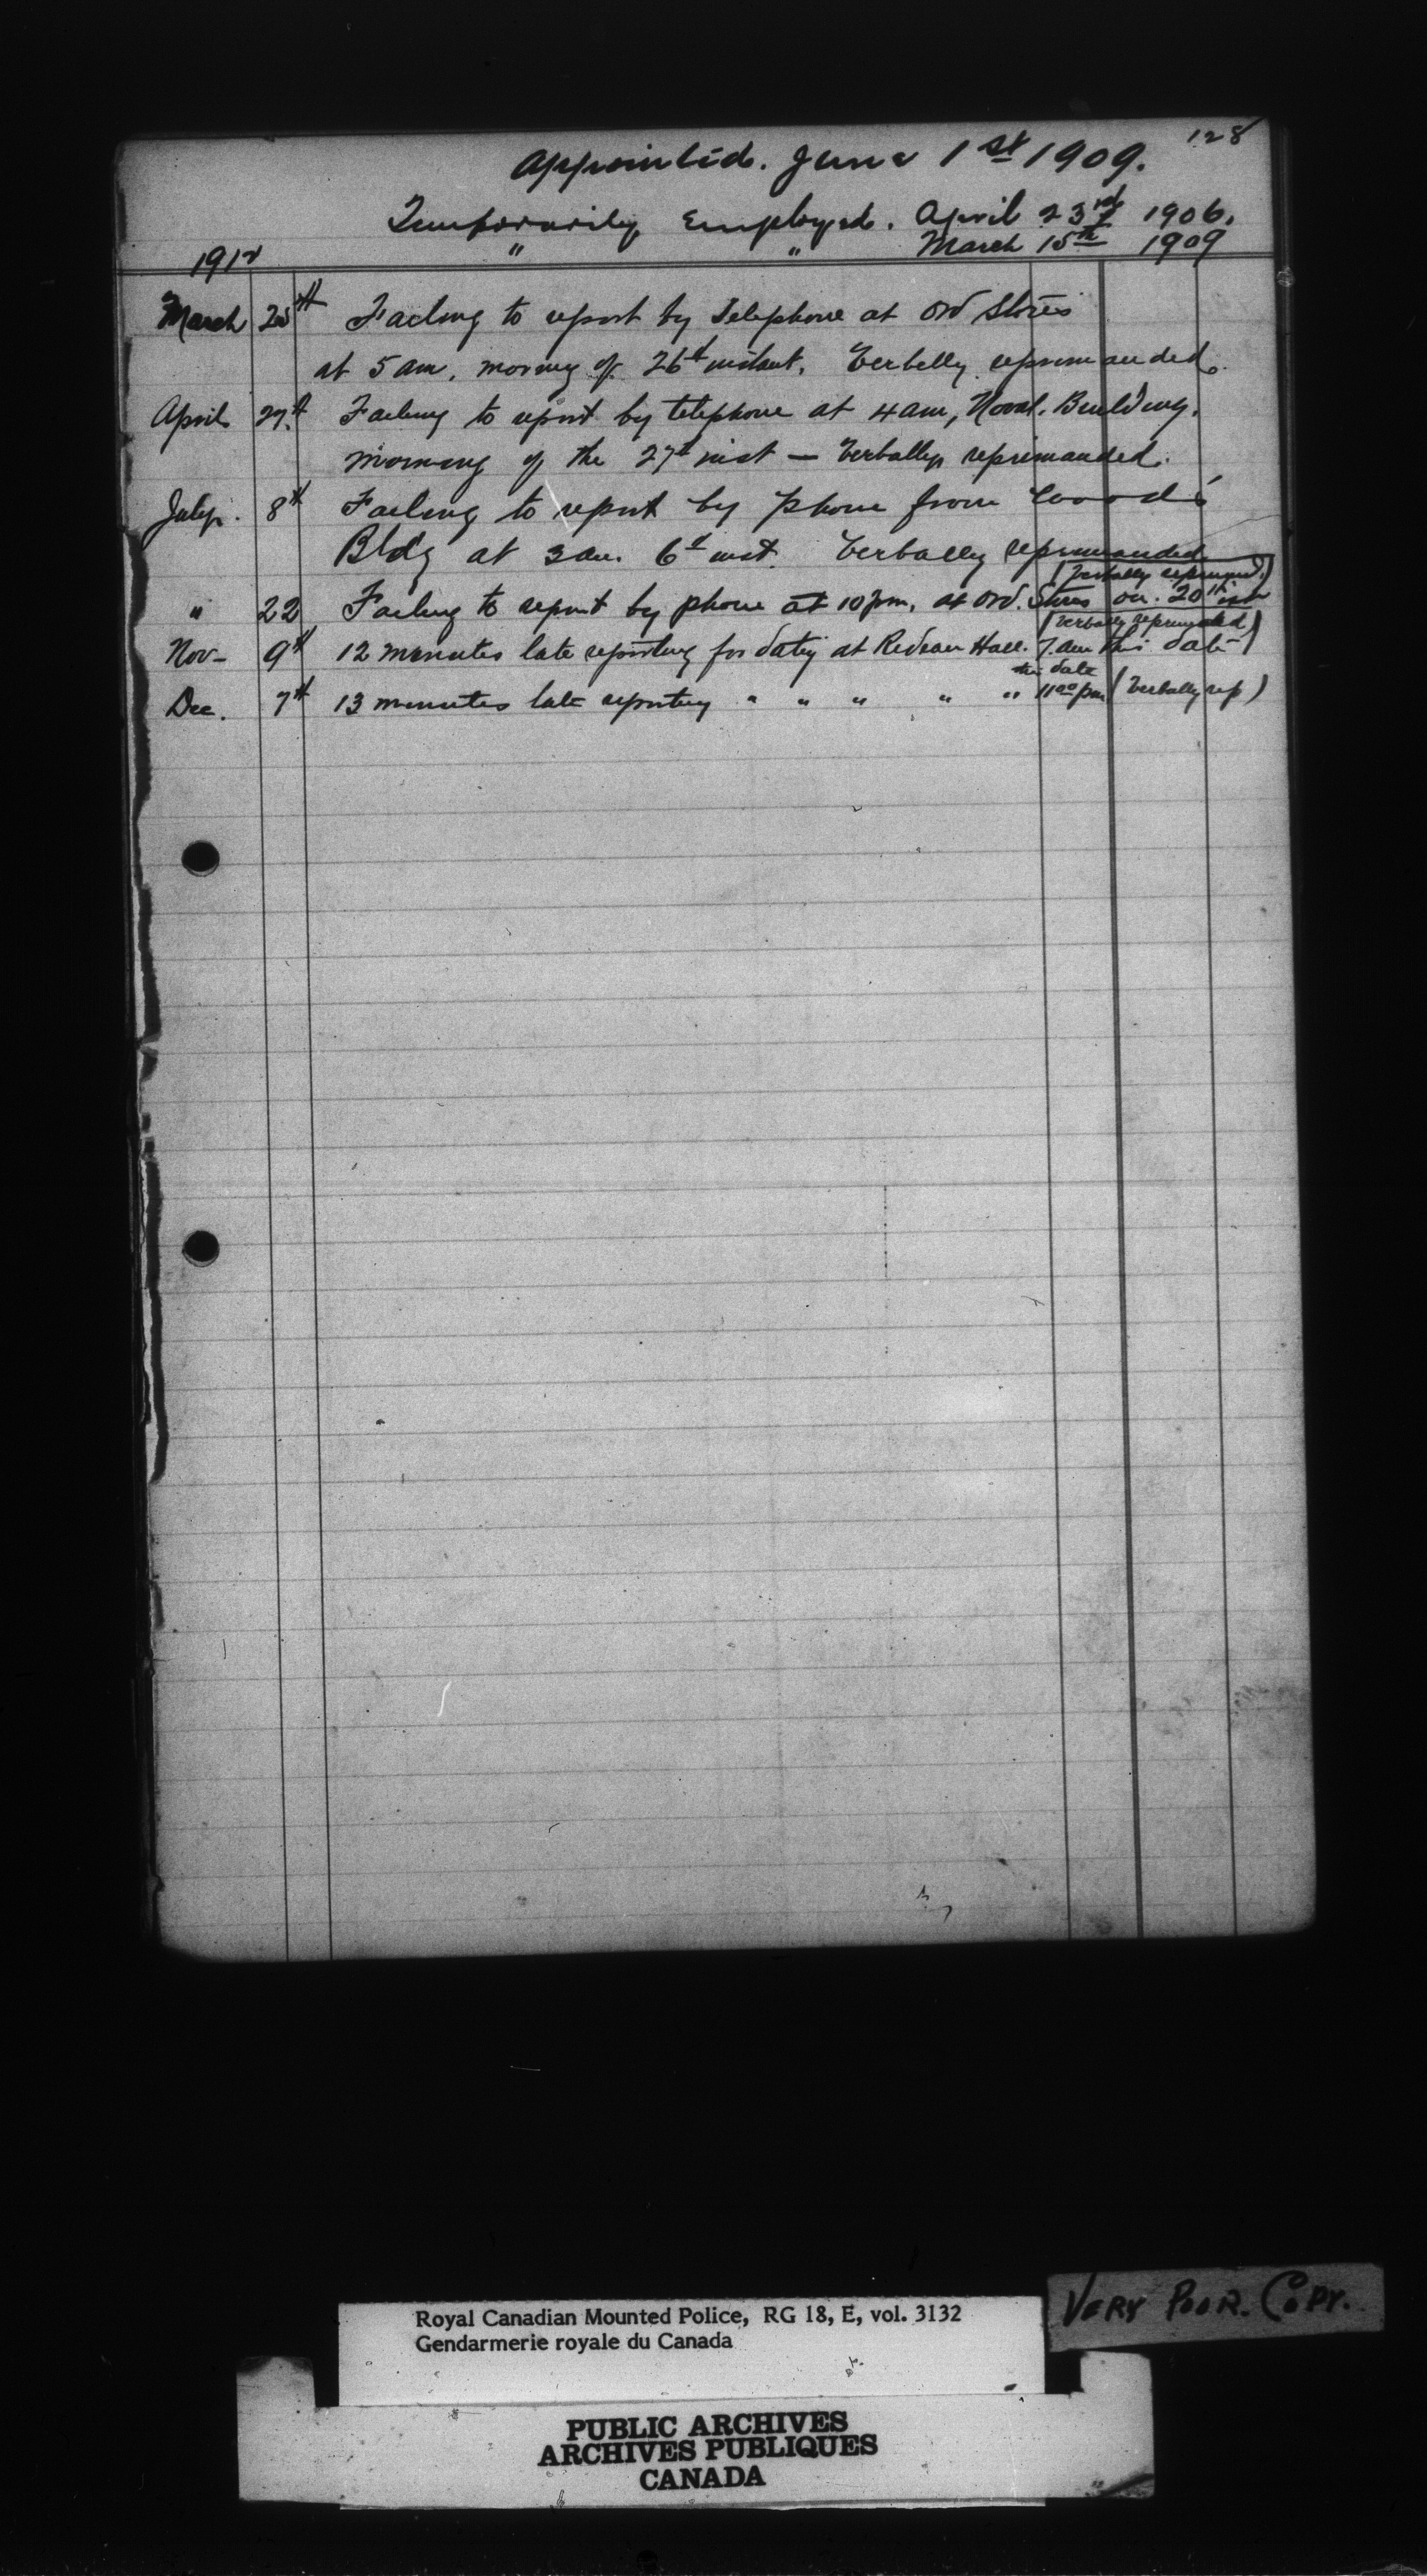 128
Appointed. June 1st 1909.
Temporarily Employed. April 23rd 1906.
" " March 15th 1909
1912
March 26th Failing to report by Telephone at Ord Stores
at 5 am, morning of 26th instant. Verbally reprimanded.
April 27th Failing to report by telephone at 4 am, Naval. Building.
morning of the 27th inst — Verbally reprimanded.
July. 8th Failing to report by phone from Woods
Bldg at 3 am. 6th inst. Verbally reprimanded
(Verbally reprimand.)
" 22 Failing to report by phone at 10 pm, at Ord. Stores on. 20th inst
(Verbally reprimanded)
Nov- 9th 12 minutes late reporting for duty at Rideau Hall. 7. am this date
this date
Dec. 7th 13 minutes late reporting " " " " " 11 00 pm (Verbally rep)
VERY POOR. COPY.
Royal Canadian Mounted Police, RG 18, E, vol. 3132
Gendarmerie royale du Canada
PUBLIC ARCHIVES
ARCHIVES PUBLIQUES
CANADA